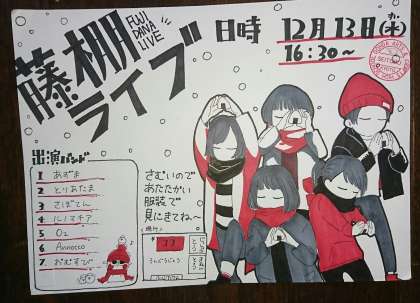 藤棚
ライブ
FUJI
DANA
LIVE
日時
12月13日(木)
16:30~
出演バンド
1 あずま
2 とりあたま
3 さぼてん
4 ルノマチア
5 O2
6 Annocco
7 おむすび
さむいので
あたたかい
服装で
見にきてね~
ココ
うんどうじょう